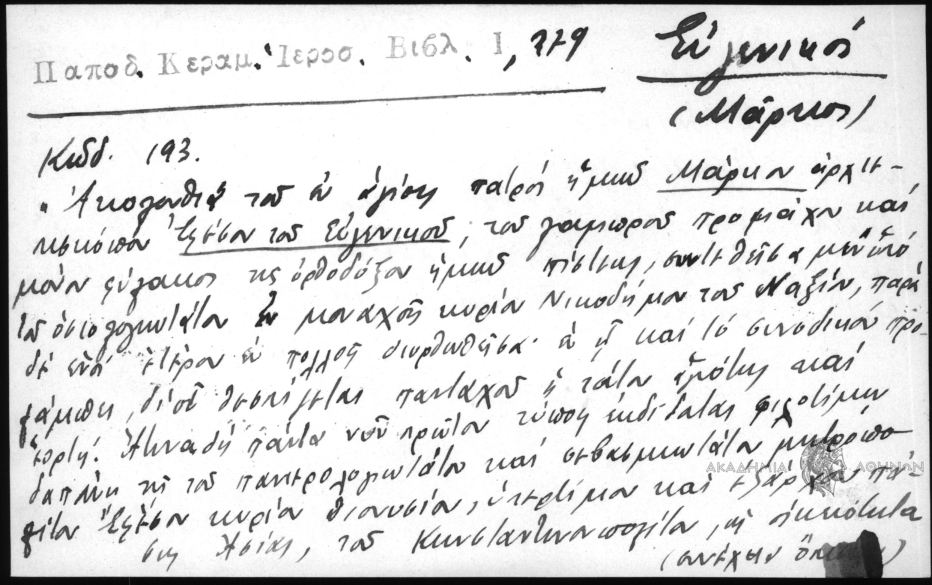 Παπαδ. Κεραμ. Ἱεροσ. Βιβλ. Ι, 279
Εὐγενικός
(Μάρκος)
Κωδ. 193.
"Ἀκολουθία τοῦ ἐν ἁγίοις πατρός ἡμῶν Μάρκου ἀρχιε-
πισκόπου Ἐφέσου τοῦ Εὐγενικοῦ, τοῦ λαμπροῦ προμάχου καί
μόνου φύλακος τῆς ὀρθοδόξου ἡμῶν πίστεως, συντεθεῖσα μέν ὑπό
τοῦ ὁσιολογιωτάτου ἐν μοναχοῖς κυρίου Νικοδήμου τοῦ Ναξίου, παρά
δέ ἑνός ἑτέρου ἐν πολλοῖς διορθωθεῖσα· ἐν ᾗ καί τό συνοδικόν προ-
δι' οὗ θεσπίζεται πανταχοῦ ἡ τούτου καί
ἑορτή. Ἅτινα δή πάντα νῦν πρῶτον τύποις ἐκδίδοται φιλοτίμῳ
δαπάνῃ τῆς τοῦ πανιερολογιωτάτου καί σεβασμιωτάτου μητροπο-
λίτου Ἐφέσου κυρίου Διονυσίου, ὑπερτίμου καί ἐξάρχου πά-
σης Ἀσίας, τοῦ Κωνσταντινουπολίτου, εἰς
(συνέχεια
ΑΚΑΔΗΜΙΑ ΑΘΗΝΩΝ